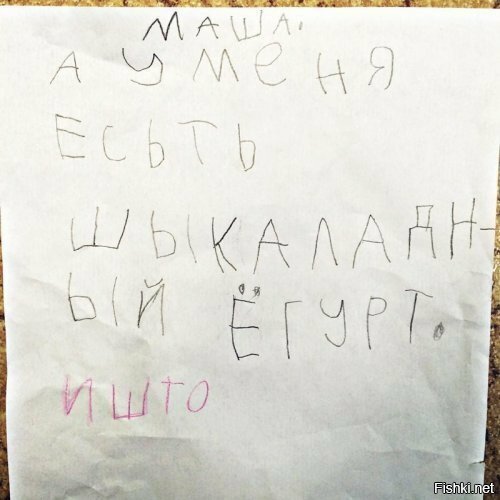 МАША.
А У МЕНЯ
ЕСЬТЬ
ШЫКАЛАДН-
ЫЙ ЁГУРТ.
И ШТО
Fishki.net